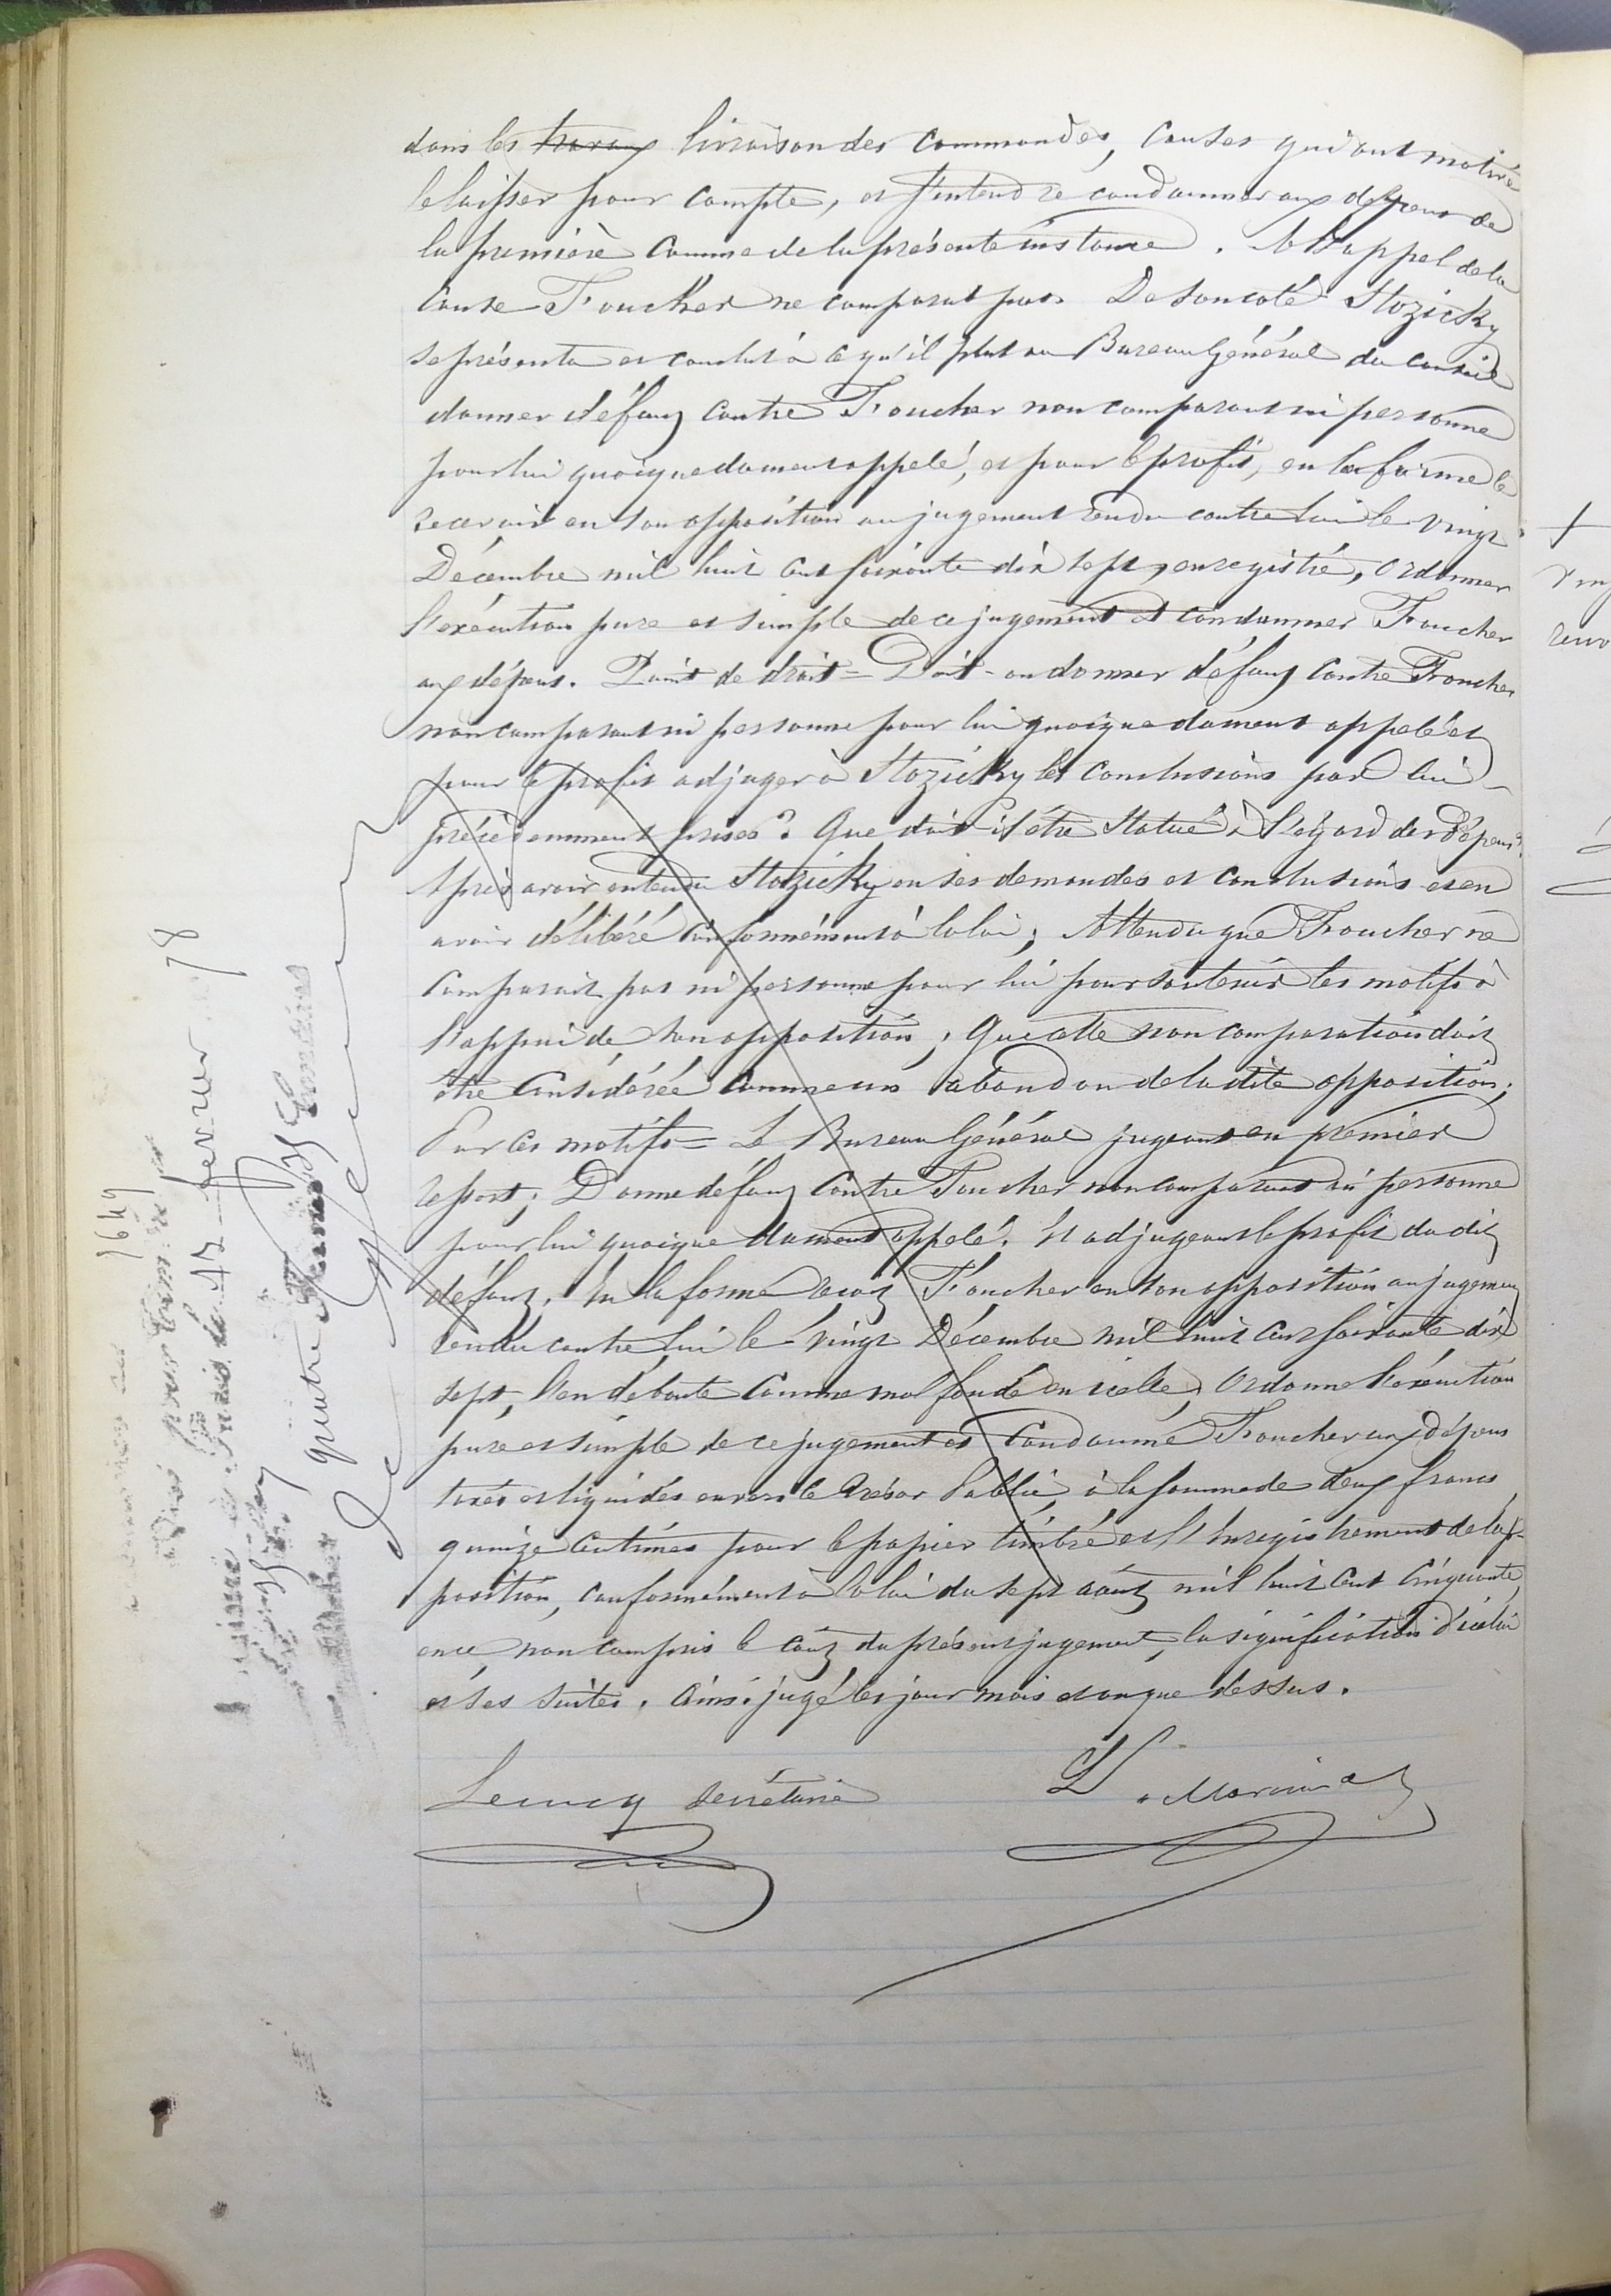 dans les travaux livraison des commandes, causes qui ont motivé
le laisser pour compte, et s'entendre condamner aux dépens de
la première comme de la présente instance. A l'appel de la
cause Foucher ne comparut pas. De son coté Stozicky
se présenta et conclut à ce qu'il plut au Bureau Général du conseil
donner défaut contre Foucher non comparant ni personne
pour lui quoique dument appelé, et pour le profit, en la forme le
recevoir en son opposition au jugement rendu contre lui le vingt
Décembre mil huit cent soixante dix sept, enregistré, Ordonner
l'exécution pure et simple de ce jugement et condamner Foucher
aux dépens. Point de droit = Doit-on donner défaut contre Foucher
non comparant ni personne pour lui quoique dument appelé et
pour le profit adjuger à Stozicky les conclusions par lui
précédemment prises? Que doit-il être statué à l'égard des dépens?
Après avoir entendu Stozicky en ses demandes et conclusions et en
avoir délibéré conformément à la loi; Attendu que Foucher ne
comparait pas ni personne pour lui pour soutenir les motifs à
l'appui de son opposition; Que cette non comparution doit
être considérée comme un abandon de la dite opposition;
Par ces motifs = Le Bureau Général jugeant en premier
ressort; Donne défaut contre Foucher non comparant ni personne
pour lui quoique dument appelé; Et adjugeant le profit du dit
défaut; En la forme reçoit Foucher en son opposition au jugement
rendu contre lui le vingt Décembre mil huit cent soixante dix
sept, l'en déboute comme mal fondé en icelle, Ordonne l'exécution
pure et simple de ce jugement et Condamne Foucher aux dépens
taxés et liquidés envers le Trésor Public, à la somme de deux francs
quinze centimes pour le papier timbré et l'Enregistrement de l'op-
position, conformément à la loi du sept août mil huit cent cinquante
, non compris le coût du présent jugement, la signification d'icelui
et ses suites. Ainsi jugé les jour mois et an que dessus.
Lecucq secrétaire
L. Marinier
février 78
quatre